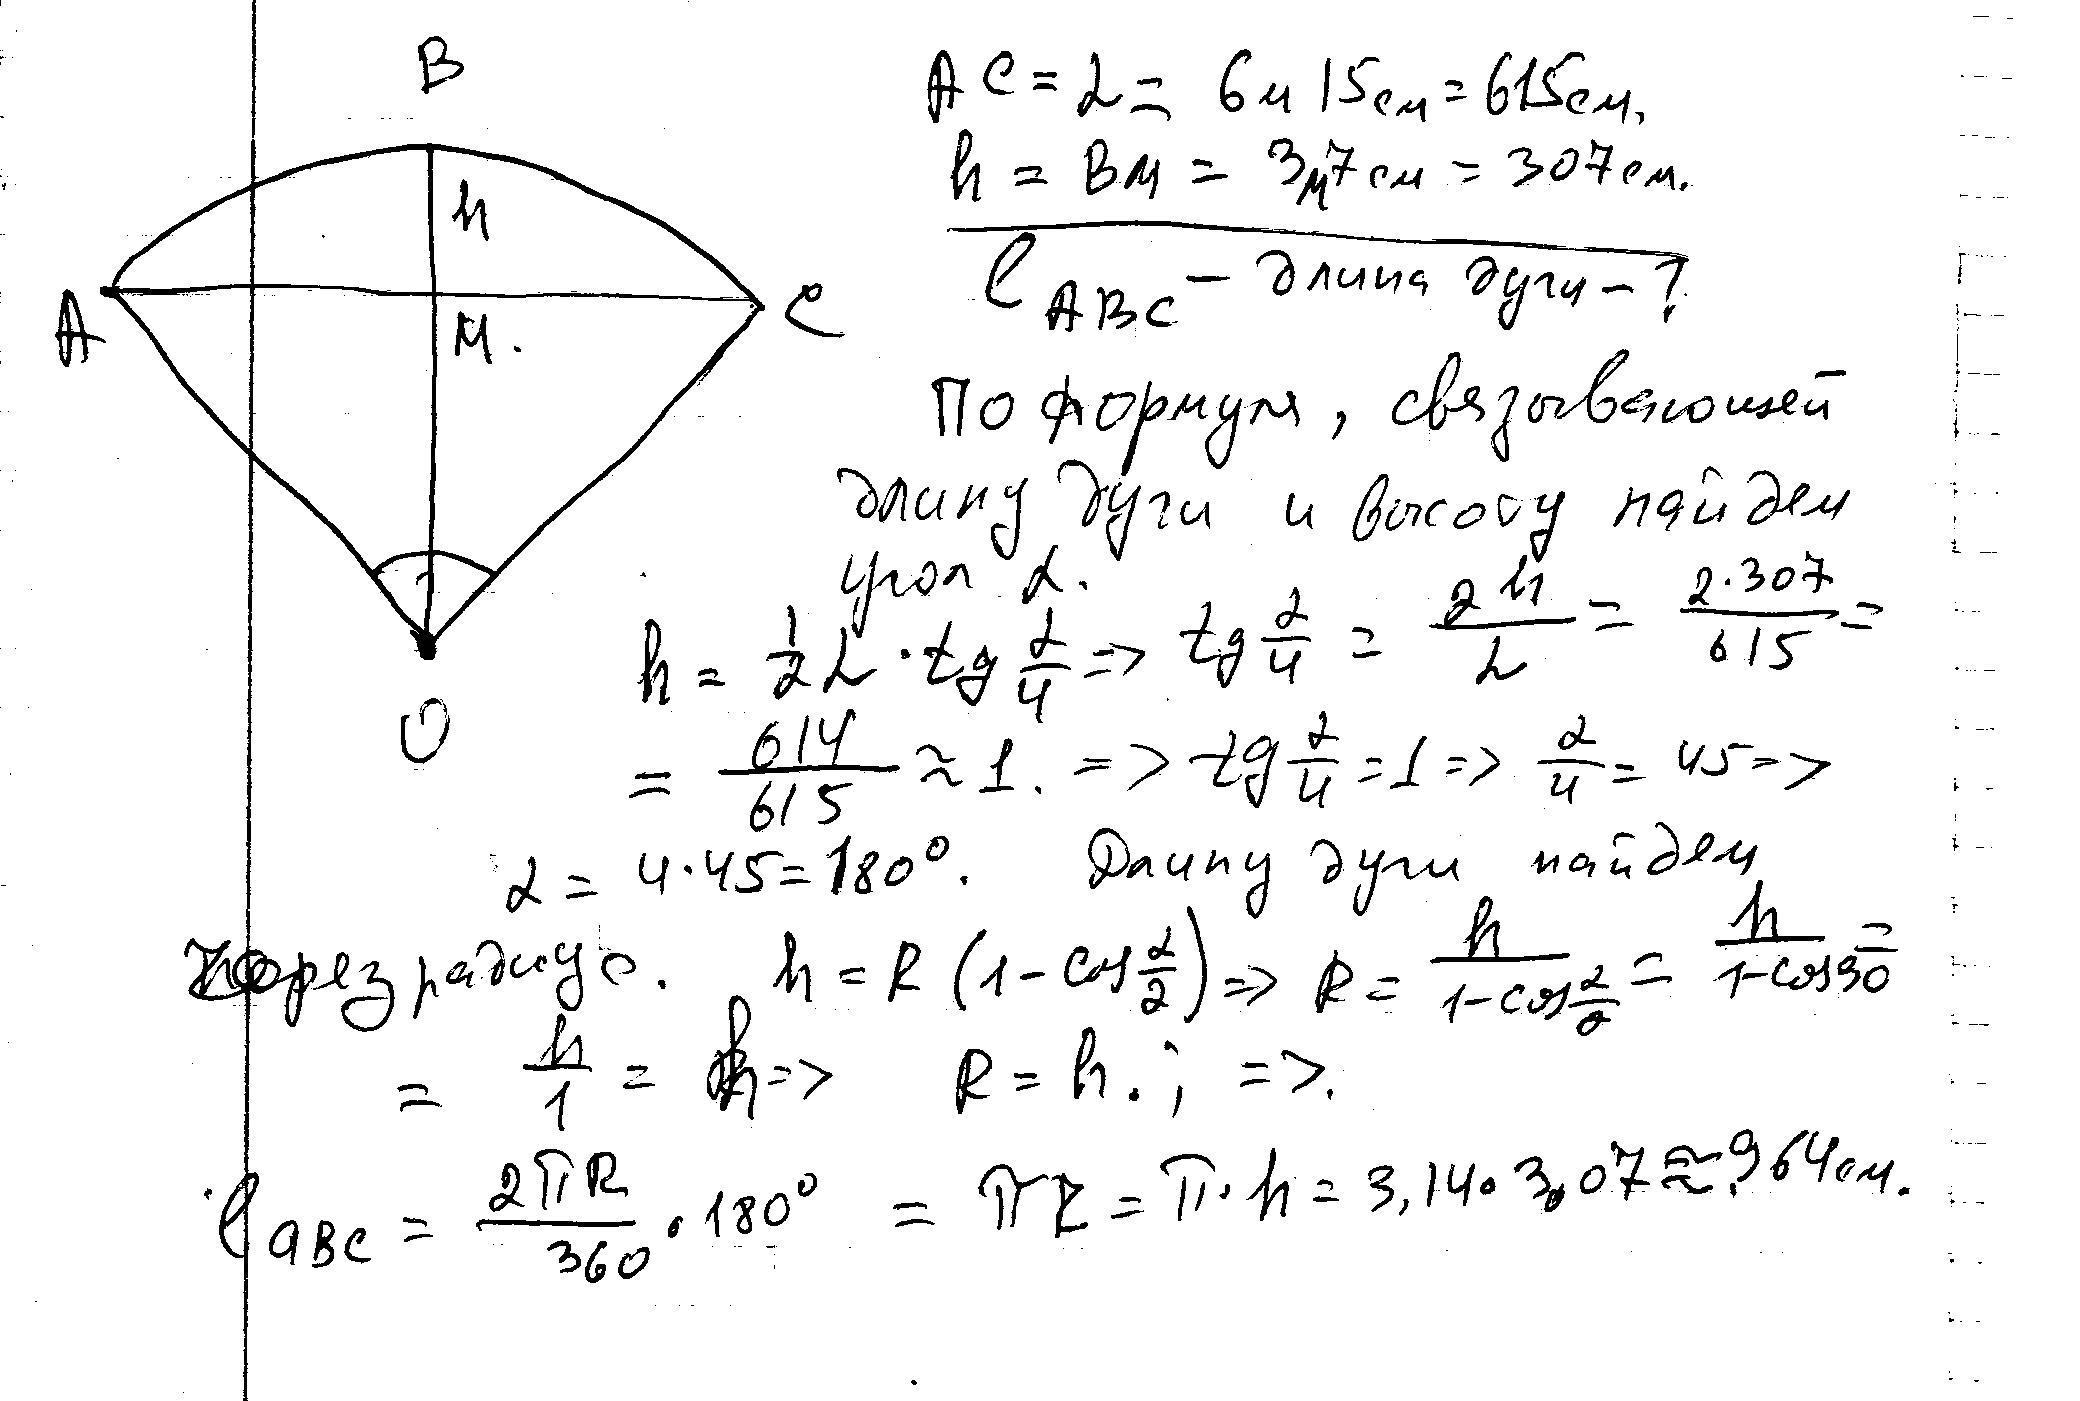 B
h
A
M.
C
O
AC = L = 6м 15см = 615см.
h = BM = 3м7см = 307см.
l ABC – длина дуги – ?
По формуля, связывающей
длину дуги и высоту найдем
угол α.
h = 1/2 L · tg α/4 => tg α/4 = 2h/L = 2·307/615 =
= 614/615 ≈ 1. => tg α/4 = 1 => α/4 = 45 =>
α = 4·45 = 180°. Длину дуги найдем
через радиус. h = R (1 - cos α/2) => R = h/(1 - cos α/2) = h/(1 - cos 90) =
= h/1 = h => R = h. ; =>.
l ABC = 2πR/360 · 180° = πR = π·h = 3,14·3,07 ≈ 964см.